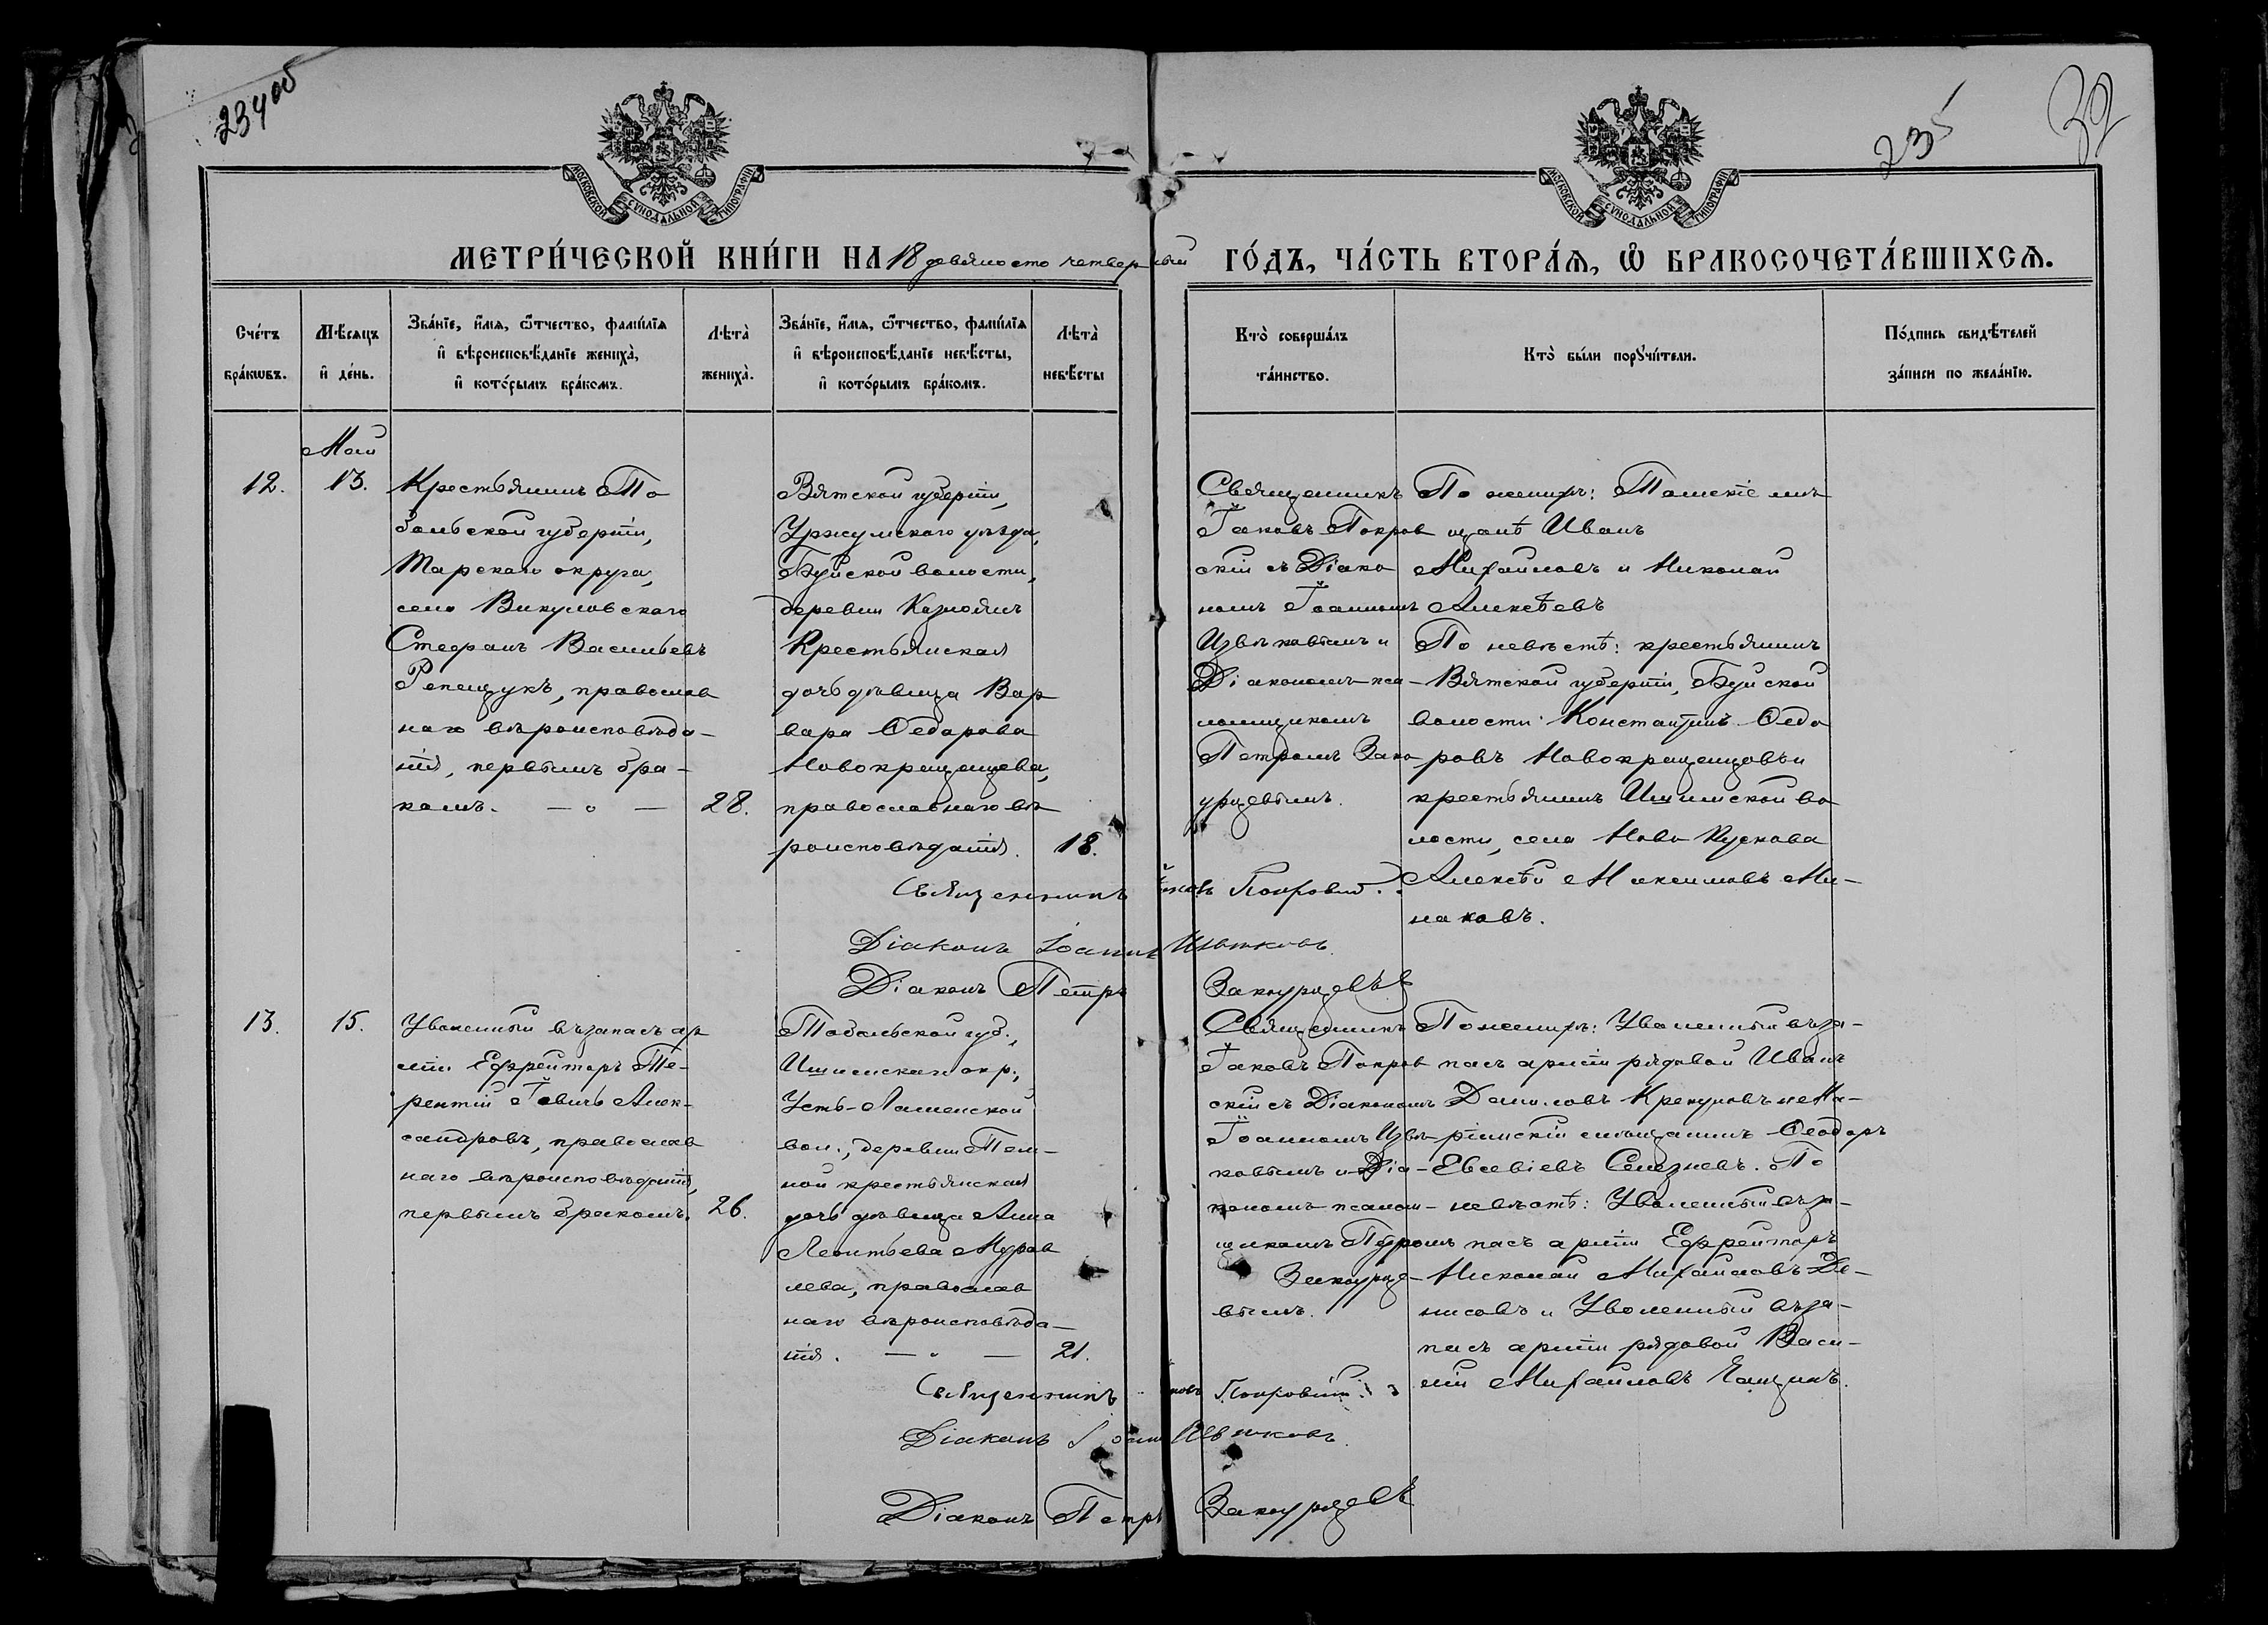 234 об
235
32
МОСКОВСКОЙ СѴНОДАЛЬНОЙ ТИПОГРАФІИ
МОСКОВСКОЙ СѴНОДАЛЬНОЙ ТИПОГРАФІИ
МЕТРИ́ЧЕСКОЙ КНИ́ГИ НА 18 девяносто четвертый ГО́ДЪ, ЧА́СТЬ ВТОРА́Ѧ, Ѽ БРАКОСОЧЕТА́ВШИХСѦ.
Сче́тъ
бра́кѡвъ.
Мѣ́сяцъ
и҆ де́нь.
Зва́нїе, и҆́мя, ѻ҆́тчество, фамѝлїя
и҆ вѣроисповѣ́данїе жениха̀,
и҆ кото́рымъ бра́комъ.
Лѣта̀
жениха̀.
Зва́нїе, и҆́мя, ѻ҆́тчество, фамѝлїя
и҆ вѣроисповѣ́данїе невѣ́сты,
и҆ кото́рымъ бра́комъ.
Лѣта̀
невѣ́сты
Кто̀ соверша́лъ
та́инство.
Кто̀ бы́ли порꙋчи́тели.
По́дпись свидѣ́телей
за́писи по жела́нїю.
Май
12.
13.
Крестьянинъ То
больской губерніи,
Тарскаго округа,
села Викуловскаго
Стефанъ Васильевъ
Репещукъ, православ
наго вѣроисповѣда-
нія, первымъ бра-
комъ. — о —
28.
Вятской губерніи,
Уржумскаго уѣзда,
Буйской волости,
деревни
Крестьянская
дочь дѣвица Вар
вара Ѳедорова
Новокрещенцева,
православнаго вѣ
роисповѣданія.
18.
Священникъ
Іаковъ Покров
скій съ Діако
номъ Іоанномъ
Извѣковымъ и
Діакономъ пса-
ломщикомъ
Петромъ Зако
урцевымъ.
По женихѣ: Томскіе мѣ
щане Иванъ
Михайловъ и Николай
Алексѣевъ
По невѣстѣ: крестьянинъ
Вятской губерніи, Буйской
волости Константинъ Ѳедо
ровъ Новокрещенцовъ и
крестьянинъ Ишимской во
лости, села Ново Кускова
Алексѣй Максимовъ Ми-
наковъ.
Священникъ Іаковъ Покровскій.
Діаконъ Іоаннъ Извѣковъ.
Діаконъ Петръ Закоурцевъ
13.
15.
Уволенный въ запасъ ар
міи Ефрейторъ Те-
рентій Іовичъ Алек-
сандровъ, православ
наго вѣроисповѣданія,
первымъ бракомъ.
26.
Тобольской губ.,
Ишимскаго окр.,
Усть-Ламенской
вол., деревни Тем-
ной крестьянская
дочь дѣвица Анна
Леонтьева Мурав
лева, православ
наго вѣроисповѣда-
нія. — „ —
21.
Священникъ
Іаковъ Покров
скій съ Діакономъ
Іоанномъ Извѣ
ковымъ и Діа-
кономъ псалом-
щикомъ Петромъ
Закоурце-
вымъ.
По женихѣ: Уволенный въ за-
пасъ арміи рядовой Иванъ
Даниловъ Крекуновъ и Ма-
ріинскій мѣщанинъ Ѳеодоръ
Евсевіевъ Селезневъ. По
невѣстѣ: Уволенный въ за-
пасъ арміи Ефрейторъ
Николай Михайловъ Де-
нисовъ и Уволенный въ за-
пасъ арміи рядовой Васи-
лій Михайловъ
Священникъ Іаковъ Покровскій
Діаконъ Іоаннъ Извѣковъ.
Діаконъ Петръ Закоурцевъ